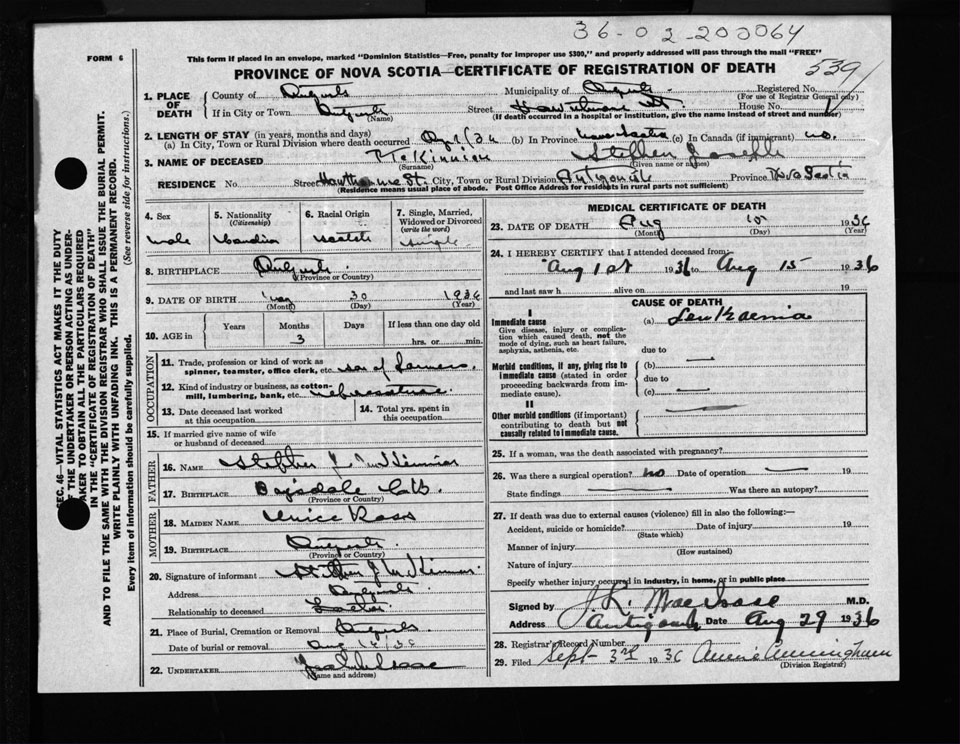 36-02-200064
FORM 6
This form if placed in an envelope, marked "Dominion Statistics—Free, penalty for improper use $300," and properly addressed will pass through the mail "FREE"
PROVINCE OF NOVA SCOTIA—CERTIFICATE OF REGISTRATION OF DEATH
539
SEC. 46—VITAL STATISTICS ACT MAKES IT THE DUTY
OF THE UNDERTAKER OR PERSON ACTING AS UNDER-
TAKER TO OBTAIN ALL THE PARTICULARS REQUIRED
IN THE "CERTIFICATE OF REGISTRATION OF DEATH"
AND TO FILE THE SAME WITH THE DIVISION REGISTRAR WHO SHALL ISSUE THE BURIAL PERMIT.
WRITE PLAINLY WITH UNFADING INK. THIS IS A PERMANENT RECORD.
(See reverse side for instructions.)
Every item of information should be carefully supplied.
1. PLACE OF DEATH
County of Municipality of Registered No.
(For use of Registrar General only)
If in City or Town Street Hawthorne St. House No. 1
(Name) (If death occurred in a hospital or institution, give the name instead of street and number)
2. LENGTH OF STAY (in years, months and days)
(a) In City, Town or Rural Division where death occurred (b) In Province Nova Scotia (c) In Canada (if immigrant) no.
3. NAME OF DECEASED McKinnon Stephen Joseph
(Surname) (Given name or names)
RESIDENCE No Street Hawthorne St. City, Town or Rural Division Antigonish Province Nova Scotia
(Residence means usual place of abode. Post Office Address for residents in rural parts not sufficient)
4. Sex
male
5. Nationality
(Citizenship)
Canadian
6. Racial Origin
Scotch
7. Single, Married,
Widowed or Divorced
(write the word)
single
8. BIRTHPLACE
(Province or Country)
9. DATE OF BIRTH May 30 1936
(Month) (Day) (Year)
10. AGE in
Years Months Days If less than one day old
3
hrs. or min.
OCCUPATION
11. Trade, profession or kind of work as
spinner, teamster, office clerk, etc. son of
12. Kind of industry or business, as cotton-
mill, lumbering, bank, etc.
13. Date deceased last worked
at this occupation
14. Total yrs. spent in
this occupation
15. If married give name of wife
or husband of deceased
FATHER
16. NAME Stephen J. McKinnon
17. BIRTHPLACE C.B.
(Province or Country)
MOTHER
18. MAIDEN NAME Ross
19. BIRTHPLACE
(Province or Country)
20. Signature of informant Stephen J McKinnon
Address
Relationship to deceased Father
21. Place of Burial, Cremation or Removal
Date of burial or removal Aug
22. UNDERTAKER
(Name and address)
MEDICAL CERTIFICATE OF DEATH
23. DATE OF DEATH Aug 15 1936
(Month) (Day) (Year)
24. I HEREBY CERTIFY that I attended deceased from
Aug 1st 1936 to Aug 15 1936
and last saw h alive on 19
CAUSE OF DEATH
I
Immediate cause
Give disease, injury or complica-
tion which caused death, not the
mode of dying, such as heart failure,
asphyxia, asthenia, etc.
(a) Leukaemia
due to
Morbid conditions, if any, giving rise to
immediate cause (stated in order
proceeding backwards from im-
mediate cause).
(b)
due to
(c)
II
Other morbid conditions (if important)
contributing to death but not
causally related to immediate cause.
25. If a woman, was the death associated with pregnancy?
26. Was there a surgical operation? no Date of operation 19
State findings Was there an autopsy?
27. If death was due to external causes (violence) fill in also the following:—
Accident, suicide or homicide? Date of injury 19
(State which)
Manner of injury
(How sustained)
Nature of injury
Specify whether injury occurred in industry, in home, or in public place
Signed by M.D.
Address Antigonish Date Aug 29 1936
28. Registrar's Record Number
29. Filed Sept 3rd 1936 Annie Cunningham
(Division Registrar)